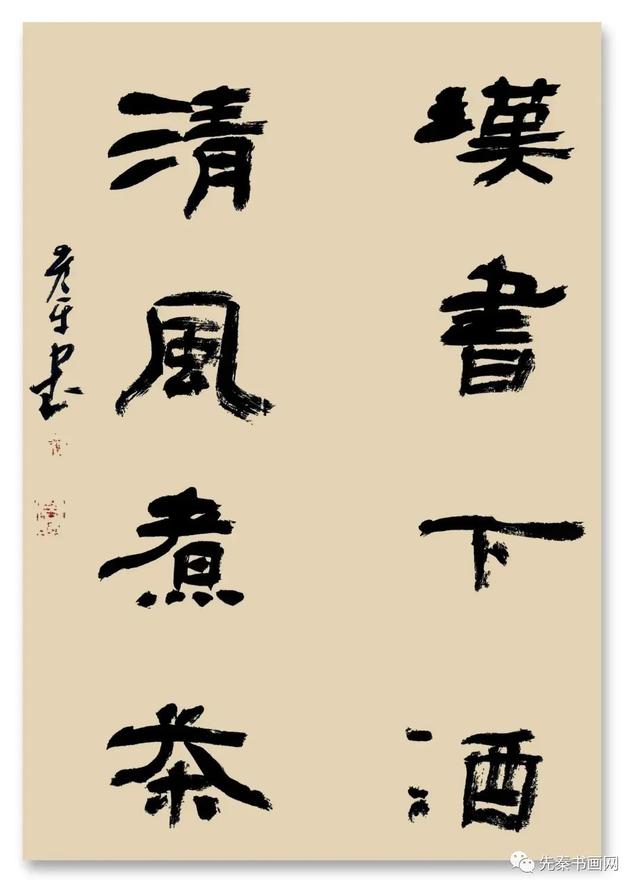 漢書下酒
清風煮茶
先秦书画网